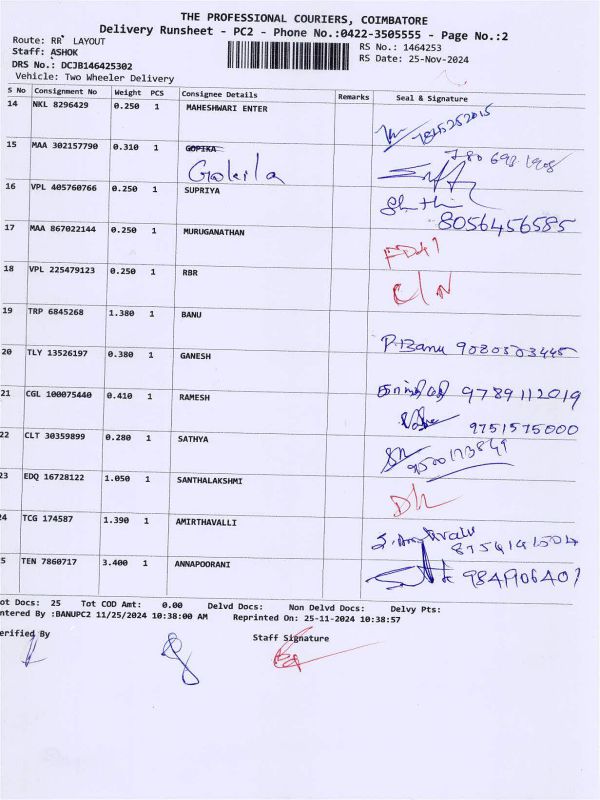 THE PROFESSIONAL COURIERS, COIMBATORE
Delivery Runsheet - PC2 - Phone No.:0422-3505555 - Page No.:2
Route: RR LAYOUT
Staff: ASHOK
DRS No.: DCJB146425302
Vehicle: Two Wheeler Delivery
RS No.: 1464253
RS Date: 25-Nov-2024
S No Consignment No Weight PCS Consignee Details Remarks Seal & Signature
14 NKL 8296429 0.250 1 MAHESHWARI ENTER
15 MAA 302157790 0.310 1 GOPIKA
Gokila
16 VPL 405760766 0.250 1 SUPRIYA
8056456585
17 MAA 867022144 0.250 1 MURUGANATHAN
18 VPL 225479123 0.250 1 RBR
C/N
19 TRP 6845268 1.380 1 BANU
P.Banu 9080503445
20 TLY 13526197 0.380 1 GANESH
9789112019
21 CGL 100075440 0.410 1 RAMESH
9751575000
22 CLT 30359899 0.280 1 SATHYA
23 EDQ 16728122 1.050 1 SANTHALAKSHMI
24 TCG 174587 1.390 1 AMIRTHAVALLI
5 TEN 7860717 3.400 1 ANNAPOORANI
ot Docs: 25 Tot COD Amt: 0.00 Delvd Docs: Non Delvd Docs: Delvy Pts:
ntered By :BANUPC2 11/25/2024 10:38:00 AM Reprinted On: 25-11-2024 10:38:57
erified By Staff Signature